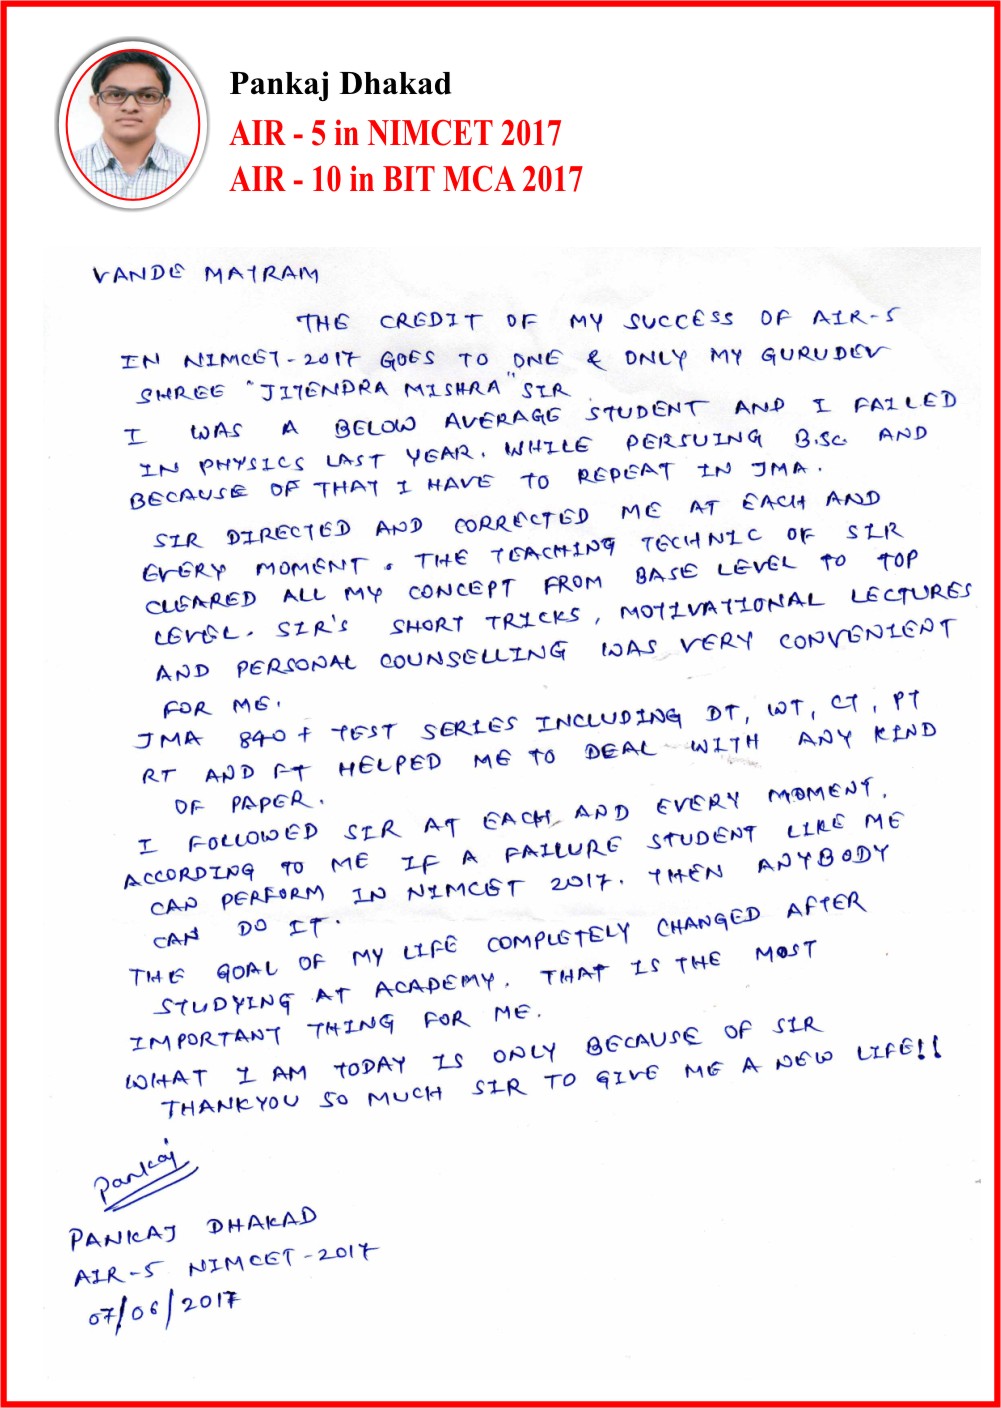 Pankaj Dhakad
AIR - 5 in NIMCET 2017
AIR - 10 in BIT MCA 2017
VANDE MATRAM
THE CREDIT OF MY SUCCESS OF AIR-5
IN NIMCET-2017 GOES TO ONE & ONLY MY GURUDEV
SHREE "JITENDRA MISHRA" SIR
I WAS A BELOW AVERAGE STUDENT AND I FAILED
IN PHYSICS LAST YEAR. WHILE PERSUING B.Sc. AND
BECAUSE OF THAT I HAVE TO REPEAT IN JMA.
SIR DIRECTED AND CORRECTED ME AT EACH AND
EVERY MOMENT. THE TEACHING TECHNIC OF SIR
CLEARED ALL MY CONCEPT FROM BASE LEVEL TO TOP
LEVEL. SIR'S SHORT TRICKS, MOTIVATIONAL LECTURES
AND PERSONAL COUNSELLING WAS VERY CONVENIENT
FOR ME.
JMA 840+ TEST SERIES INCLUDING DT, WT, CT, PT
RT AND FT HELPED ME TO DEAL WITH ANY KIND
OF PAPER.
I FOLLOWED SIR AT EACH AND EVERY MOMENT.
ACCORDING TO ME IF A FAILURE STUDENT LIKE ME
CAN PERFORM IN NIMCET 2017. THEN ANYBODY
CAN DO IT.
THE GOAL OF MY LIFE COMPLETELY CHANGED AFTER
STUDYING AT ACADEMY. THAT IS THE MOST
IMPORTANT THING FOR ME.
WHAT I AM TODAY IS ONLY BECAUSE OF SIR
THANKYOU SO MUCH SIR TO GIVE ME A NEW LIFE!!
Pankaj
PANKAJ DHAKAD
AIR-5 NIMCET-2017
07/06/2017